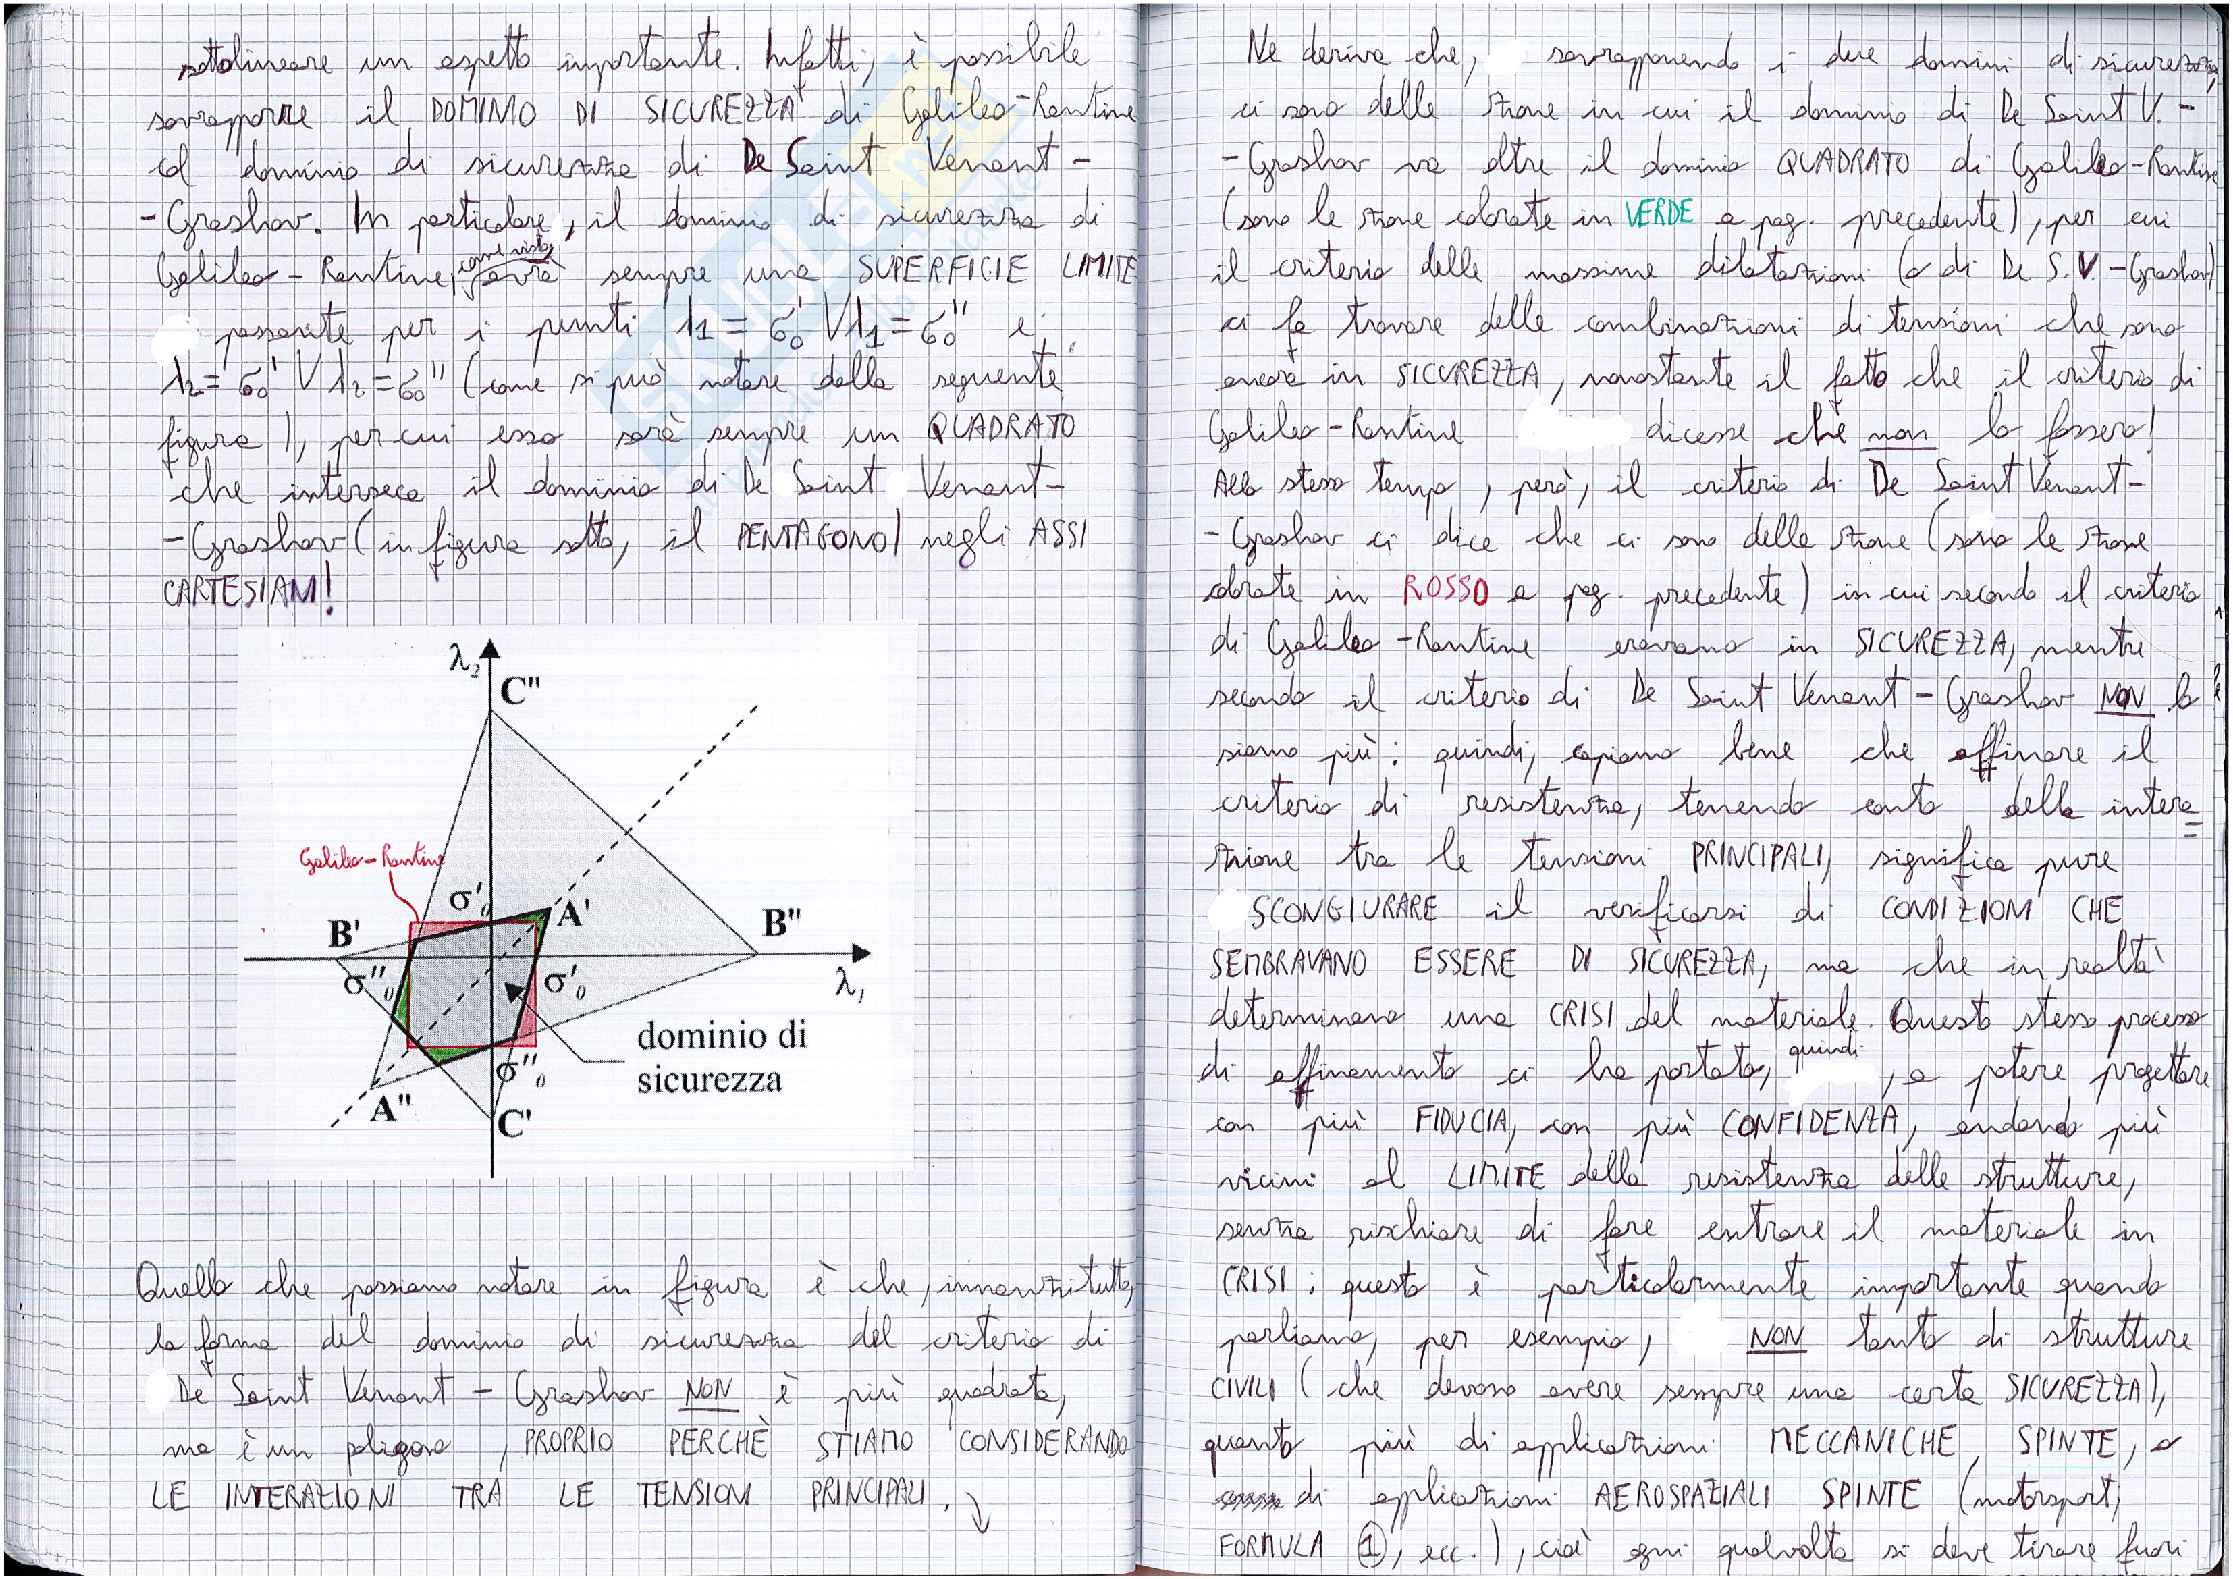 sottolineare un aspetto importante. Infatti, è possibile
sovrapporre il DOMINIO DI SICUREZZA di Galileo-Rankine
col dominio di sicurezza di De Saint Venant-
-Grashov. In particolare, il dominio di sicurezza di
Galileo-Rankine, come visto, avrà sempre una SUPERFICIE LIMITE
passante per i punti λ1 = σ0' V λ1 = σ0'' e
λ2 = σ0' V λ2 = σ0'' (come si può notare dalla seguente
figura), per cui esso sarà sempre un QUADRATO
che interseca il dominio di De Saint Venant-
-Grashov (in figura sotto, il PENTAGONO) negli ASSI
CARTESIANI!
λ2
C''
Galileo-Rankine
σ'0
A'
B'
B''
σ''0
σ'0
λ1
dominio di
sicurezza
σ''0
A''
C'
Quello che possiamo notare in figura è che, innanzitutto,
la forma del dominio di sicurezza del criterio di
De Saint Venant - Grashov NON è più quadrata,
ma è un poligono, PROPRIO PERCHÈ STIAMO CONSIDERANDO
LE INTERAZIONI TRA LE TENSIONI PRINCIPALI.
Ne deriva che, sovrapponendo i due domini di sicurezza,
ci sono delle zone in cui il dominio di De Saint V. -
-Grashov va oltre il dominio QUADRATO di Galileo-Rankine
(sono le zone colorate in VERDE a pag. precedente), per cui
il criterio delle massime dilatazioni (o di De S.V-Grashov)
ci fa trovare delle combinazioni di tensioni che sono
ancora in SICUREZZA, nonostante il fatto che il criterio di
Galileo-Rankine dicesse che non lo fossero!
Allo stesso tempo, però, il criterio di De Saint Venant-
-Grashov ci dice che ci sono delle zone (sono le zone
colorate in ROSSO a pag. precedente) in cui secondo il criterio
di Galileo-Rankine eravamo in SICUREZZA, mentre
secondo il criterio di De Saint Venant-Grashov NON lo
siamo più: quindi, capiamo bene che affinare il
criterio di resistenza, tenendo conto della intera=
zione tra le tensioni PRINCIPALI, significa pure
SCONGIURARE il verificarsi di CONDIZIONI CHE
SEMBRAVANO ESSERE DI SICUREZZA, ma che in realtà
determinano una CRISI del materiale. Questo stesso processo
di affinamento ci ha portato, quindi, a potere progettare
con più FIDUCIA, con più CONFIDENZA, andando più
vicini al LIMITE della resistenza delle strutture,
senza rischiare di fare entrare il materiale in
CRISI; questo è particolarmente importante quando
parliamo, per esempio, NON tanto di strutture
CIVILI (che devono avere sempre una certa SICUREZZA),
quanto più di applicazioni MECCANICHE SPINTE, o
di applicazioni AEROSPAZIALI SPINTE (motorsport,
FORMULA 1, ecc.), cioè ogni qualvolta si deve tirare fuori